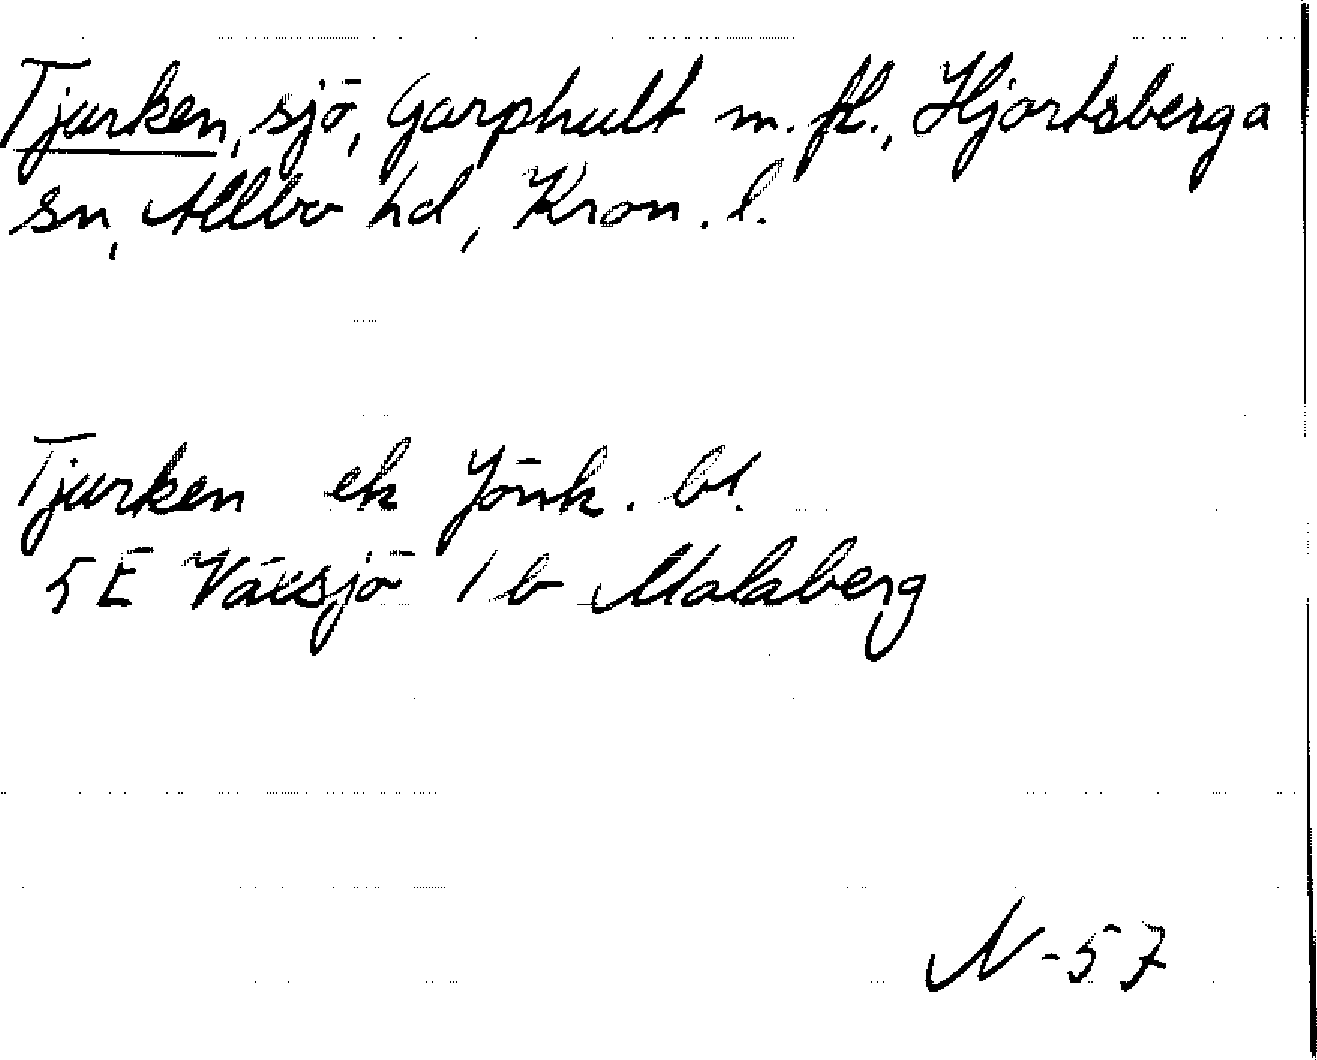 Tjurken, sjö, Garphult m. fl., Hjortsberga
sn, Allbo hd, Kron. l.
Tjurken ek Jönk. bl.
5 E Växsjö 1 b Malaberg
N-57